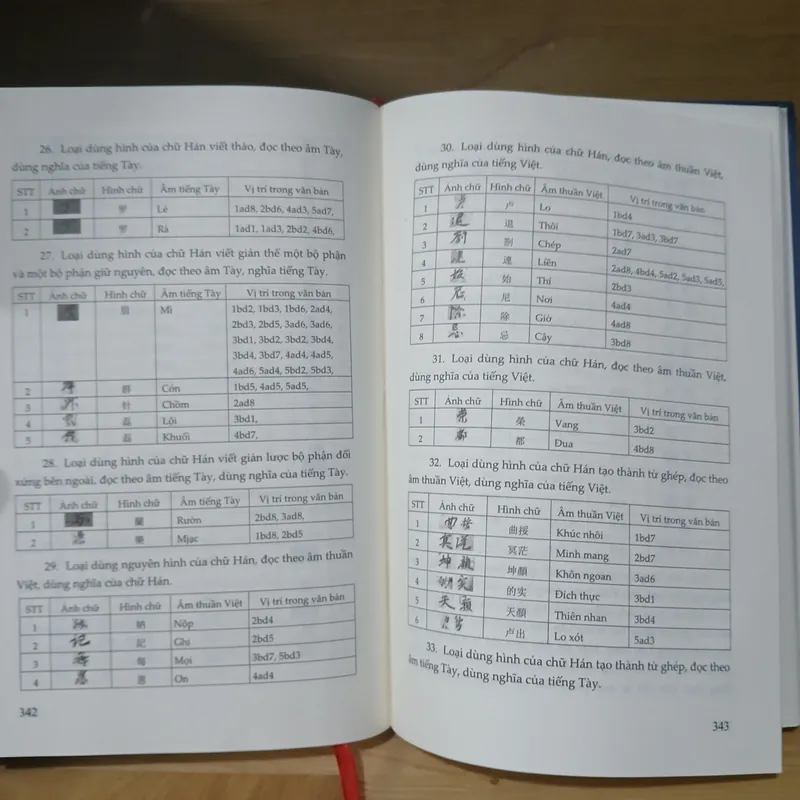 26. Loại dùng hình của chữ Hán viết tháo, đọc theo âm Tày,
dùng nghĩa của tiếng Tày.
STT Ảnh chữ Hình chữ Âm tiếng Tày Vị trí trong văn bản
1 罗 Lẻ 1ad8, 2bd6, 4ad3, 5ad7,
2 罗 Rà 1ad1, 1ad3, 2bd2, 4bd6,
27. Loại dùng hình của chữ Hán viết giản thể một bộ phận
và một bộ phận giữ nguyên, đọc theo âm Tày, nghĩa tiếng Tày.
STT Ảnh chữ Hình chữ Âm tiếng Tày Vị trí trong văn bản
1 眉 Mì 1bd2, 1bd3, 1bd6, 2ad4,
2bd3, 2bd5, 3ad6, 3ad6,
3bd1, 3bd2, 3bd2, 3bd4,
3bd4, 3bd7, 4ad4, 4ad5,
4ad6, 5ad4, 5bd2, 5bd3,
2 群 Cón 1bd5, 4ad5, 5ad5,
3 针 Chồm 2ad8
4 磊 Lội 3bd1,
5 磊 Khuổi 4bd7,
28. Loại dùng hình của chữ Hán viết giản lược bộ phận đối
xứng bên ngoài, đọc theo âm tiếng Tày, dùng nghĩa của tiếng Tày.
STT Ảnh chữ Hình chữ Âm tiếng Tày Vị trí trong văn bản
1 蘭 Rườn 2bd8, 3ad8,
2 Mjạc 1bd8, 2bd5
29. Loại dùng nguyên hình của chữ Hán, đọc theo âm thuần
Việt, dùng nghĩa của chữ Hán.
STT Ảnh chữ Hình chữ Âm thuần Việt Vị trí trong văn bản
1 納 Nộp 2bd4
2 記 記 Ghi 2bd5
3 每 Mọi 3bd7, 5bd3
4 恩 Ơn 4ad4
342
30. Loại dùng hình của chữ Hán, đọc theo âm thuần Việt,
dùng nghĩa của tiếng Việt.
STT Ảnh chữ Hình chữ Âm thuần Việt Vị trí trong văn bản
1 卢 Lo 1bd4
2 退 退 Thôi 1bd7, 3ad3, 3bd7
3 劄 Chép 2ad7
4 連 連 Liền 2ad8, 4bd4, 5ad2, 5ad3, 5ad5,
5 始 Thí 2bd3
6 尼 尼 Nơi 4ad4
7 除 除 Giờ 4ad8
8 忌 忌 Cậy 3bd8
31. Loại dùng hình của chữ Hán, đọc theo âm thuần Việt,
dùng nghĩa của tiếng Việt.
STT Ảnh chữ Hình chữ Âm thuần Việt Vị trí trong văn bản
1 榮 榮 Vang 3bd2
2 都 都 Đua 4bd8
32. Loại dùng hình của chữ Hán tạo thành từ ghép, đọc theo
âm thuần Việt, dùng nghĩa của tiếng Việt.
STT Ảnh chữ Hình chữ Âm thuần Việt Vị trí trong văn bản
1 曲挼 曲挼 Khúc nhôi 1bd7
2 冥茫 Minh mang 2bd7
3 坤顏 坤顏 Khôn ngoan 3ad6
4 的实 Đích thực 3bd1
5 天顏 天顏 Thiên nhan 3bd4
6 卢出 Lo xót 5ad3
33. Loại dùng hình của chữ Hán tạo thành từ ghép, đọc theo
âm tiếng Tày, dùng nghĩa của tiếng Tày.
343